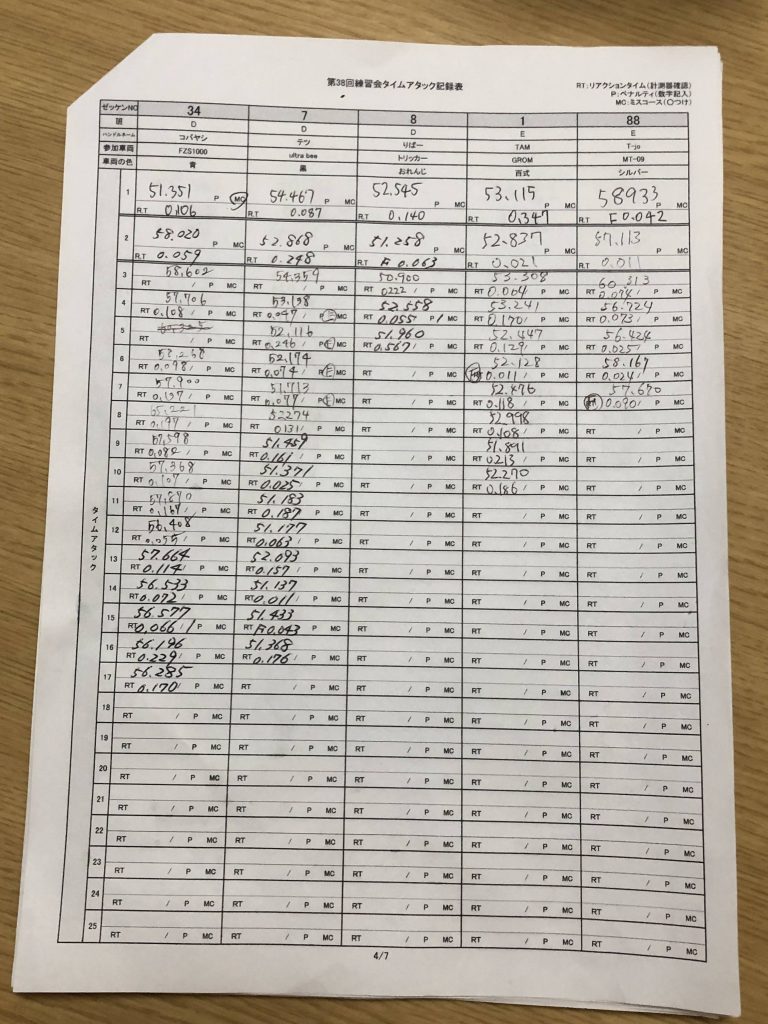 第38回練習会タイムアタック記録表
RT:リアクションタイム(計測器確認)
P:ペナルティ(数字記入)
MC:ミスコース(○つけ)
ゼッケンNO 34 7 8 1 88
班 D D D E E
ハンドルネーム コバヤシ テツ りばー TAM T-jo
参加車両 FZS1000 ultra bee トリッカー GROM MT-09
車両の色 青 黒 おれんじ 百式 シルバー
タイムアタック
1 51.351 P MC 54.467 P MC 52.545 P MC 53.115 P MC 58933 P MC
R.T 0.106 R.T 0.087 R.T 0.140 R.T 0.347 R.T F 0.042
2 58.020 P MC 52.868 P MC 51.258 P MC 52.837 P MC 57.113 P MC
R.T 0.059 R.T 0.248 R.T F 0.063 R.T 0.021 R.T 0.011
3 58.602 54.359 50.900 53.308 60.313
RT / P MC RT / P MC RT 0222 / P MC RT 0.064 / P MC RT 0.074 / P MC
4 57.706 53.138 52.558 53.241 56.724
RT 0.108 / P MC RT 0.047 / P MC RT 0.055 P 1 MC RT 0.170 / P MC RT 0.073 / P MC
5 52.116 51.960 52.447 56.424
RT / P MC RT 0.246 / P MC RT 0.567 / P MC RT 0.129 / P MC RT 0.025 / P MC
6 58.238 52.174 52.128 58.167
RT 0.098 / P MC RT 0.074 / P MC RT / P MC RT 0.011 / P MC RT 0.024 / P MC
7 57.900 51.713 52.476 57.670
RT 0.137 / P MC RT 0.077 / P MC RT / P MC RT 0.118 / P MC RT 0.090 / P MC
8 52274 52.998
RT 0.197 / P MC RT 0131 / P MC RT / P MC RT 0.108 / P MC RT / P MC
9 57.598 51.459 51.891
RT 0.082 / P MC RT 0.161 / P MC RT / P MC RT 0213 / P MC RT / P MC
10 57.368 51.371 52.270
RT 0.107 / P MC RT 0.025 / P MC RT / P MC RT 0.186 / P MC RT / P MC
11 57.870 51.183
RT 0.167 / P MC RT 0.187 / P MC RT / P MC RT / P MC RT / P MC
12 56.408 51.177
RT 0.055 / P MC RT 0.063 / P MC RT / P MC RT / P MC RT / P MC
13 57.664 52.093
RT 0.114 / P MC RT 0.157 / P MC RT / P MC RT / P MC RT / P MC
14 56.533 51.137
RT 0.072 / P MC RT 0.011 / P MC RT / P MC RT / P MC RT / P MC
15 56.577 51.433
RT 0.066 / 1 P MC RT F 0.043 P MC RT / P MC RT / P MC RT / P MC
16 56.196 51.368
RT 0.229 / P MC RT 0.176 / P MC RT / P MC RT / P MC RT / P MC
17 56.285
RT 0.170 / P MC RT / P MC RT / P MC RT / P MC RT / P MC
18
RT / P MC RT / P MC RT / P MC RT / P MC RT / P MC
19
RT / P MC RT / P MC RT / P MC RT / P MC RT / P MC
20
RT / P MC RT / P MC RT / P MC RT / P MC RT / P MC
21
RT / P MC RT / P MC RT / P MC RT / P MC RT / P MC
22
RT / P MC RT / P MC RT / P MC RT / P MC RT / P MC
23
RT / P MC RT / P MC RT / P MC RT / P MC RT / P MC
24
RT / P MC RT / P MC RT / P MC RT / P MC RT / P MC
25
RT / P MC RT / P MC RT / P MC RT / P MC RT / P MC
4/7